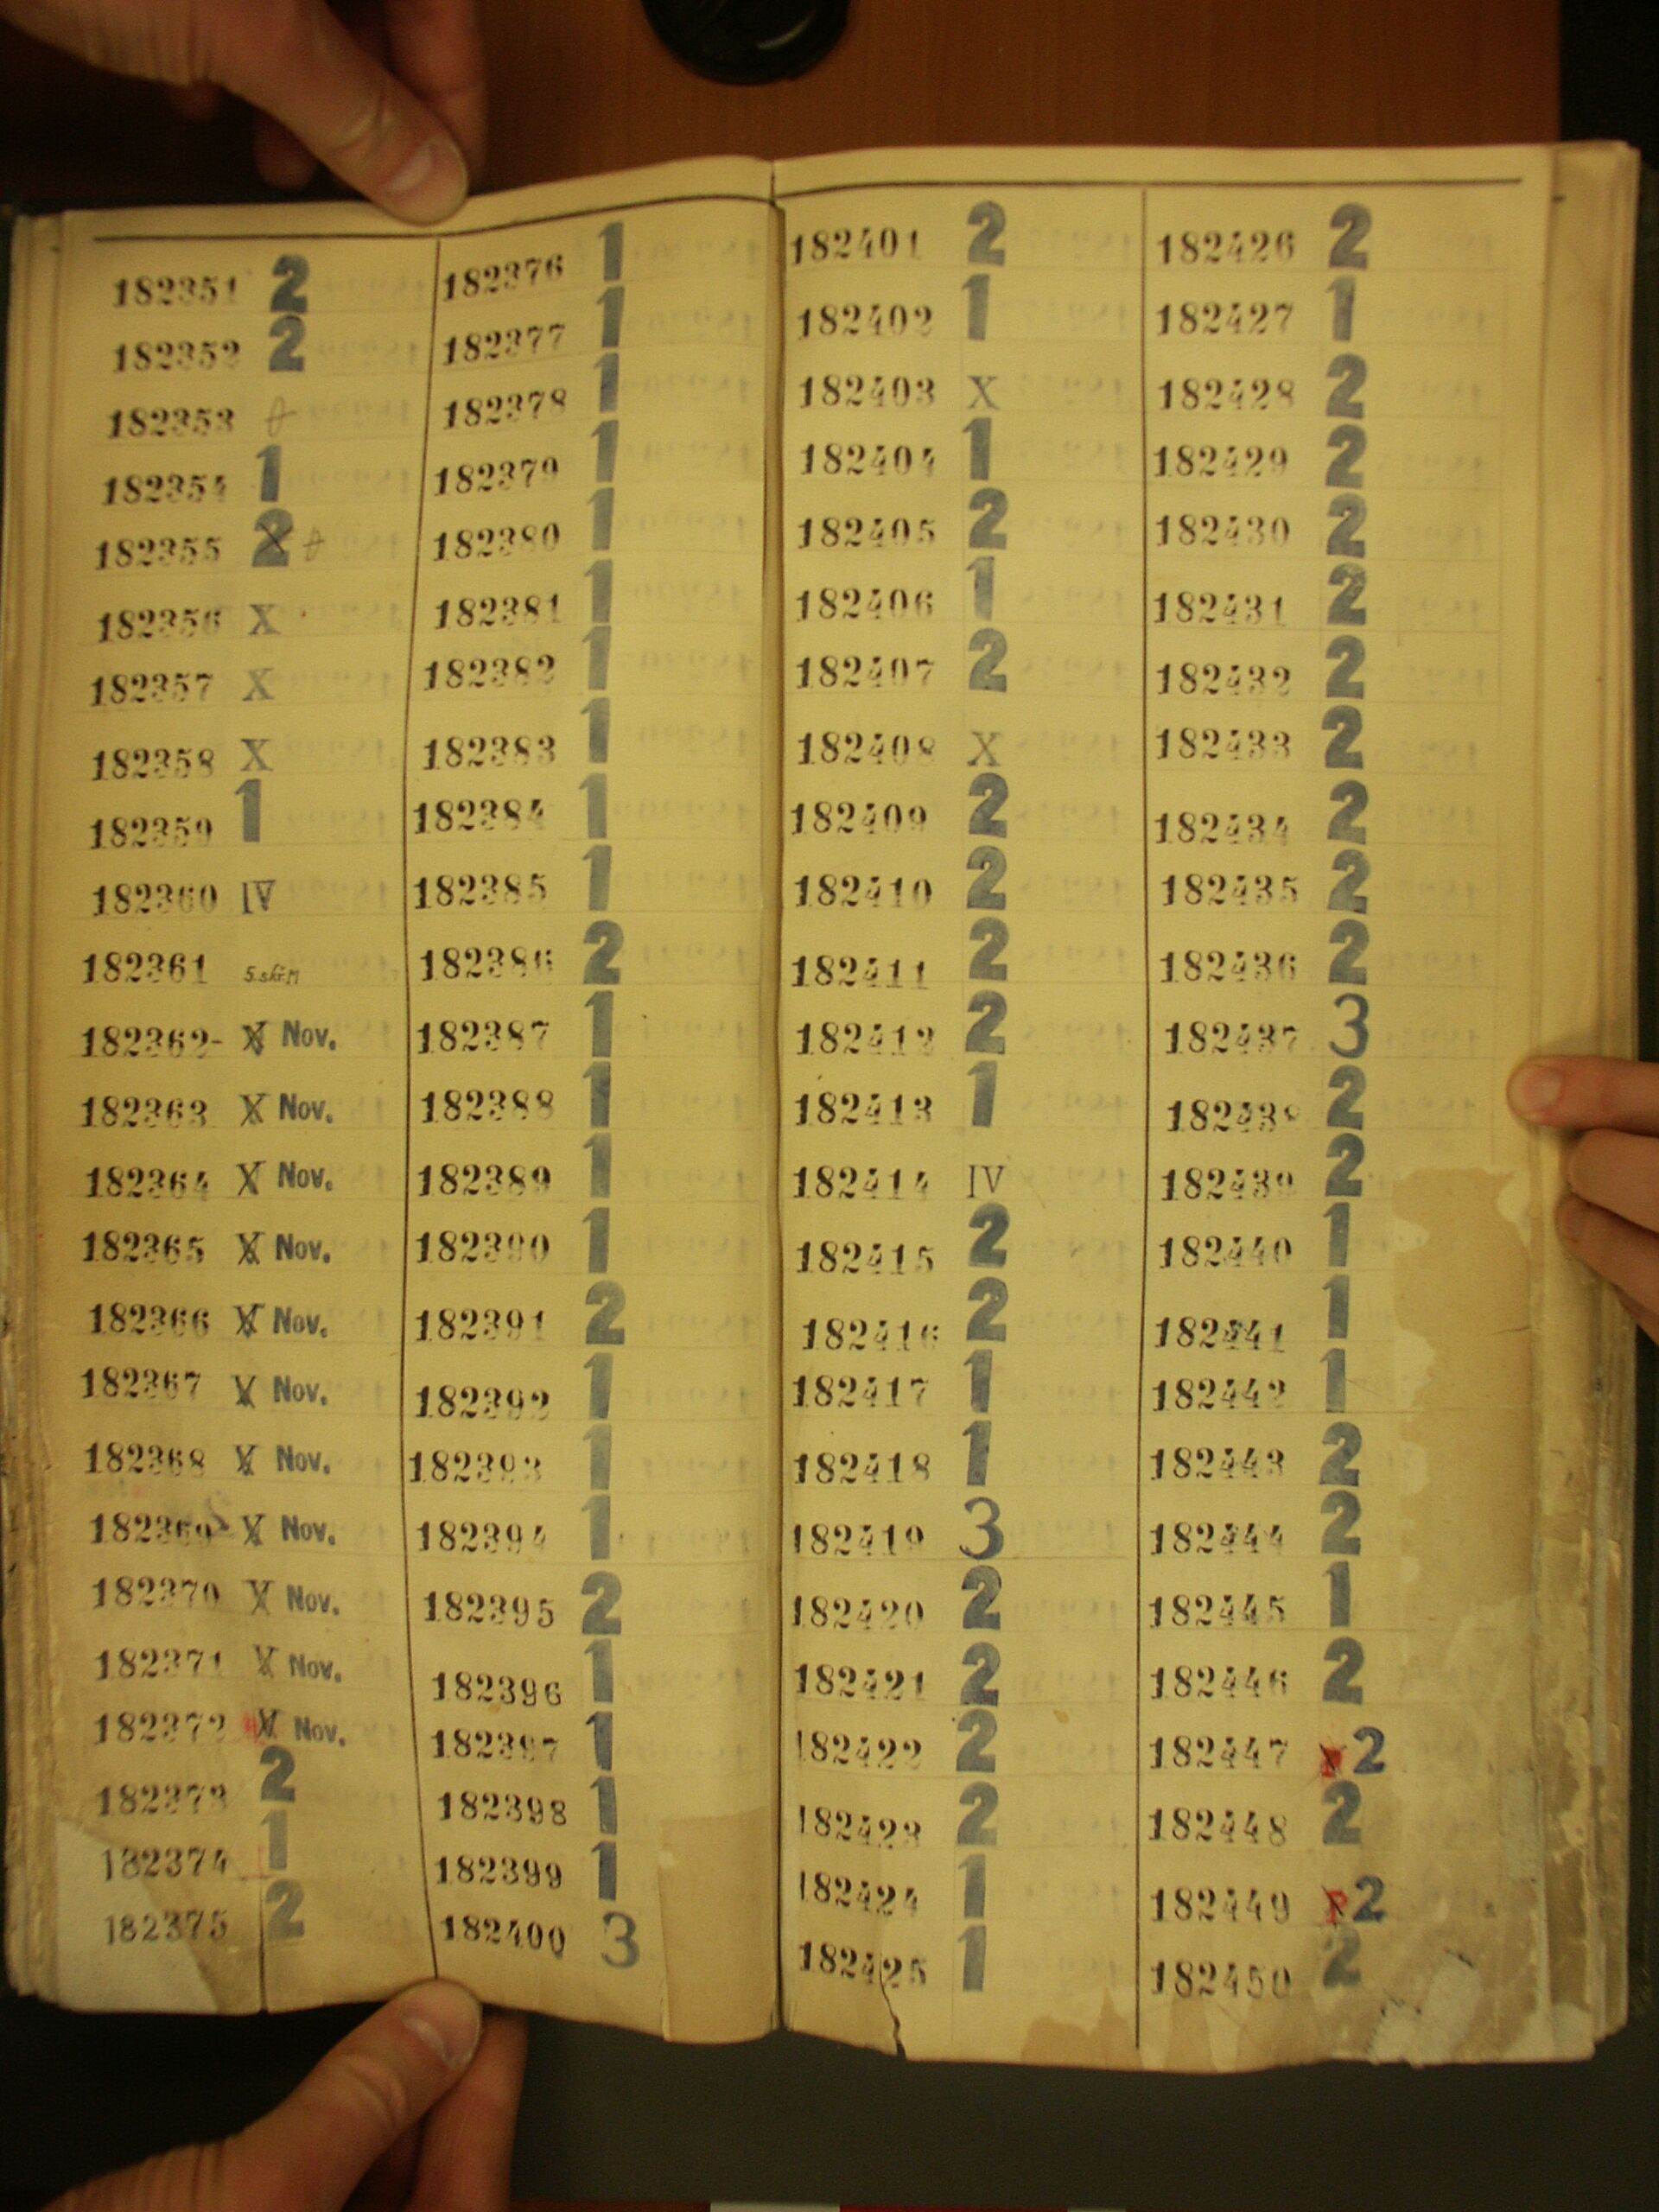 182351 2
182352 2
182353
182354 1
182355 2
182356 X
182357 X
182358 X
182359 1
182360 IV
182361
182362- X Nov.
182363 X Nov.
182364 X Nov.
182365 X Nov.
182366 X Nov.
182367 X Nov.
182368 X Nov.
182369 X Nov.
182370 X Nov.
182371 X Nov.
182372 X Nov.
182373 2
182374 1
182375 2
182376 1
182377 1
182378 1
182379 1
182380 1
182381 1
182382 1
182383 1
182384 1
182385 1
182386 2
182387 1
182388 1
182389 1
182390 1
182391 2
182392 1
182393 1
182394 1
182395 2
182396 1
182397 1
182398 1
182399 1
182400 3
182401 2
182402 1
182403 X
182404 1
182405 2
182406 1
182407 2
182408 X
182409 2
182410 2
182411 2
182412 2
182413 1
182414 IV
182415 2
182416 2
182417 1
182418 1
182419 3
182420 2
182421 2
182422 2
182423 2
182424 1
182425 1
182426 2
182427 1
182428 2
182429 2
182430 2
182431 2
182432 2
182433 2
182434 2
182435 2
182436 2
182437 3
182438 2
182439 2
182440 1
182441 1
182442 1
182443 2
182444 2
182445 1
182446 2
182447 2
182448 2
182449 2
182450 2